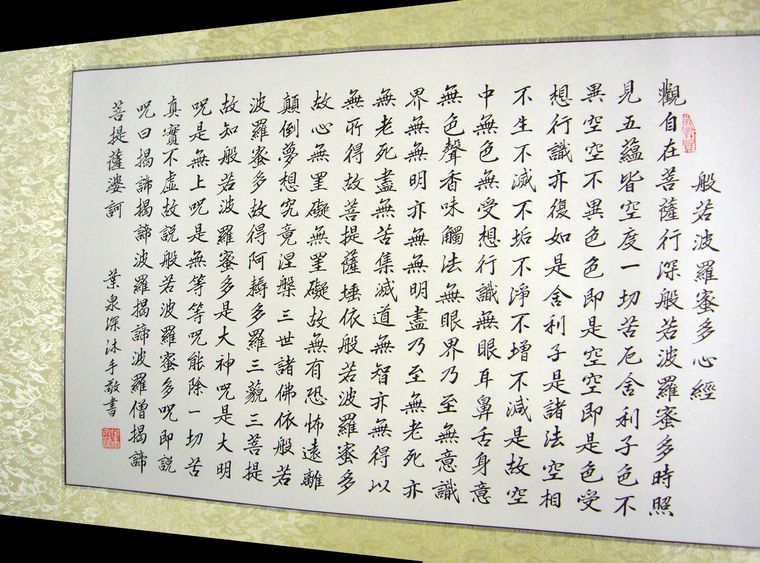 般若波羅蜜多心經
觀自在菩薩行深般若波羅蜜多時照
見五蘊皆空度一切苦厄舍利子色不
異空空不異色色即是空空即是色受
想行識亦復如是舍利子是諸法空相
不生不滅不垢不淨不增不減是故空
中無色無受想行識無眼耳鼻舌身意
無色聲香味觸法無眼界乃至無意識
界無無明亦無無明盡乃至無老死亦
無老死盡無苦集滅道無智亦無得以
無所得故菩提薩埵依般若波羅蜜多
故心無罣礙無罣礙故無有恐怖遠離
顛倒夢想究竟涅槃三世諸佛依般若
波羅蜜多故得阿耨多羅三藐三菩提
故知般若波羅蜜多是大神呪是大明
呪是無上呪是無等等呪能除一切苦
真實不虛故說般若波羅蜜多呪即說
呪曰揭諦揭諦波羅揭諦波羅僧揭諦
菩提薩婆訶
葉泉深沐手敬書